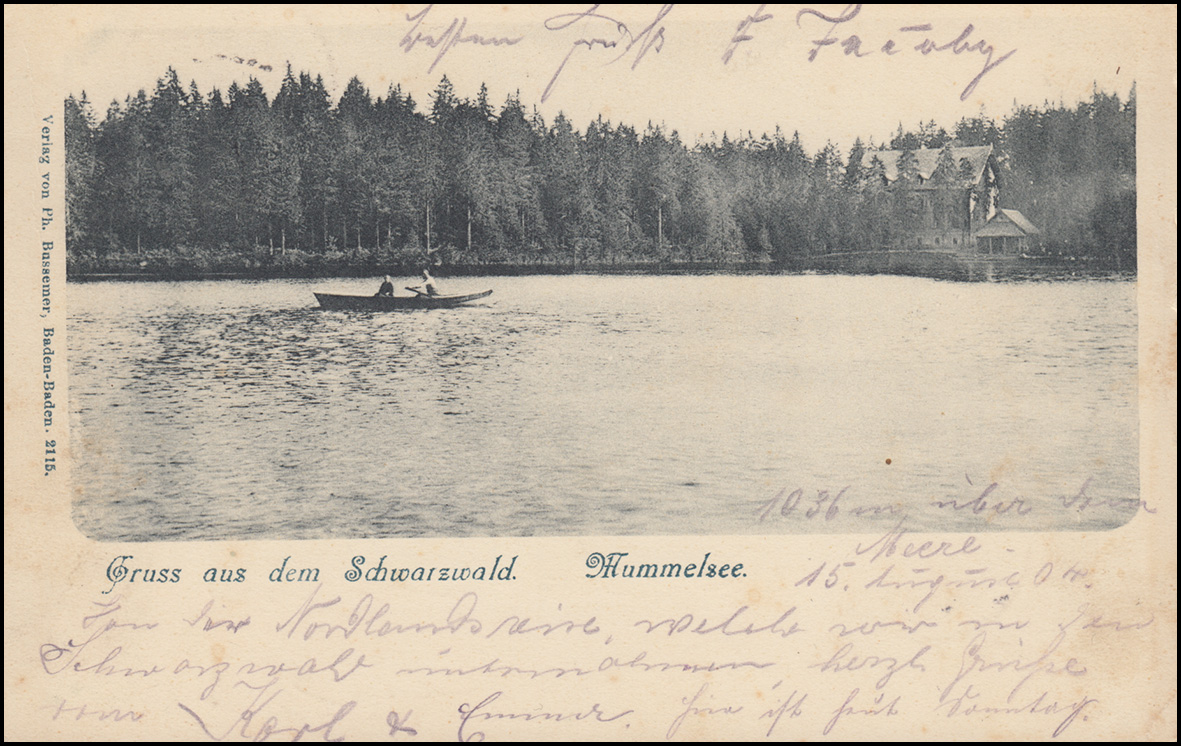 besten Gruß F. Jacoby
Verlag von Ph. Bussemer, Baden-Baden. 2115.
1036 m über dem
Meere
Gruss aus dem Schwarzwald. Mummelsee.
15. August 04.
Von der welche wir in den
Schwarzwald unternahmen, herzl Grüße
von Karl & Emma. hier ist heut Sonntag.